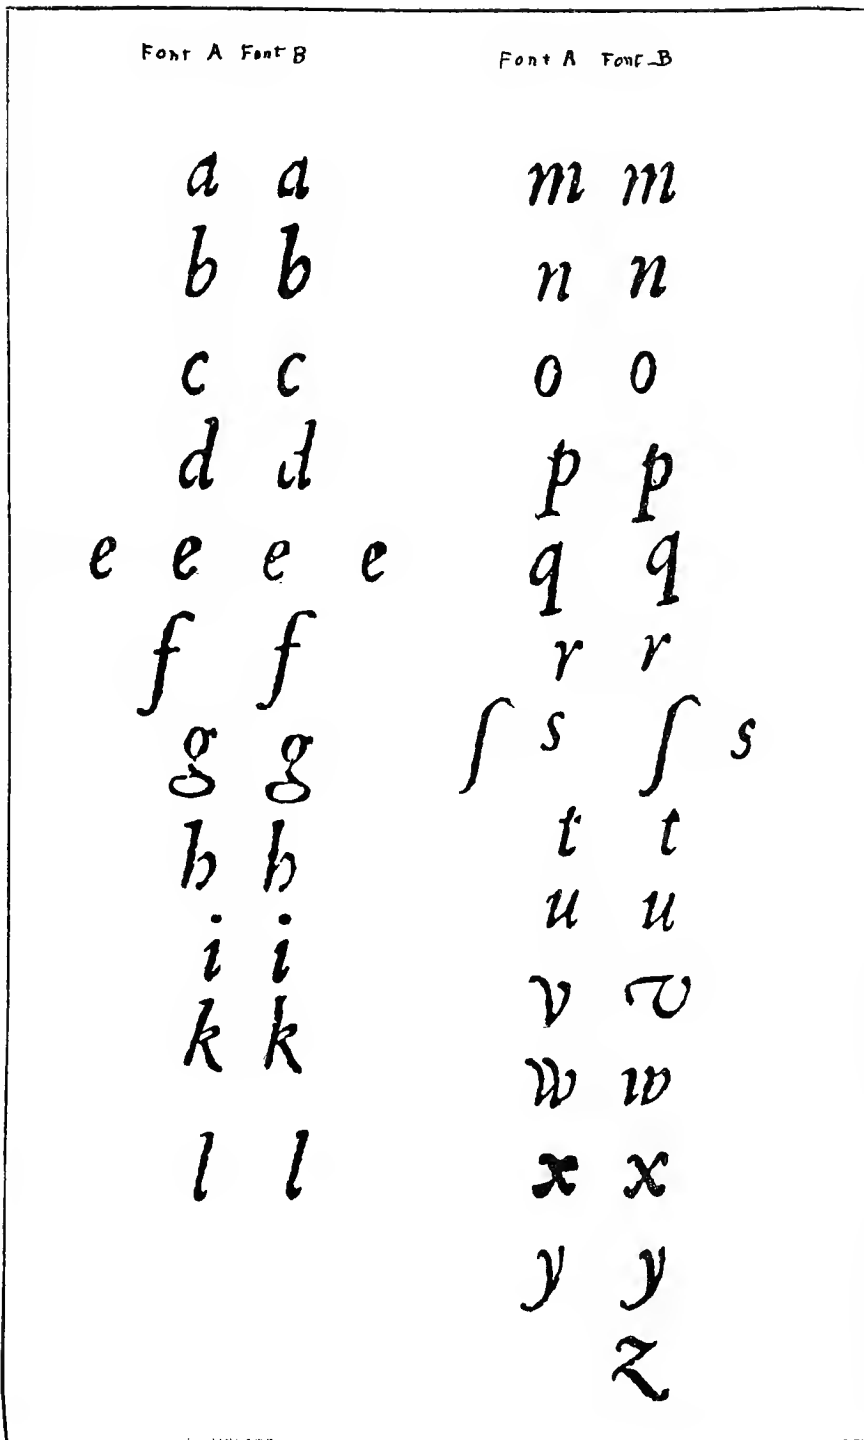 Font A Font B
a a
b b
c c
d d
e e e e
f f
g g
h h
i i
k k
l l
Font A Font B
m m
n n
o o
p p
q q
r r
ſ s ſ s
t t
u u
v v
w w
x x
y y
z